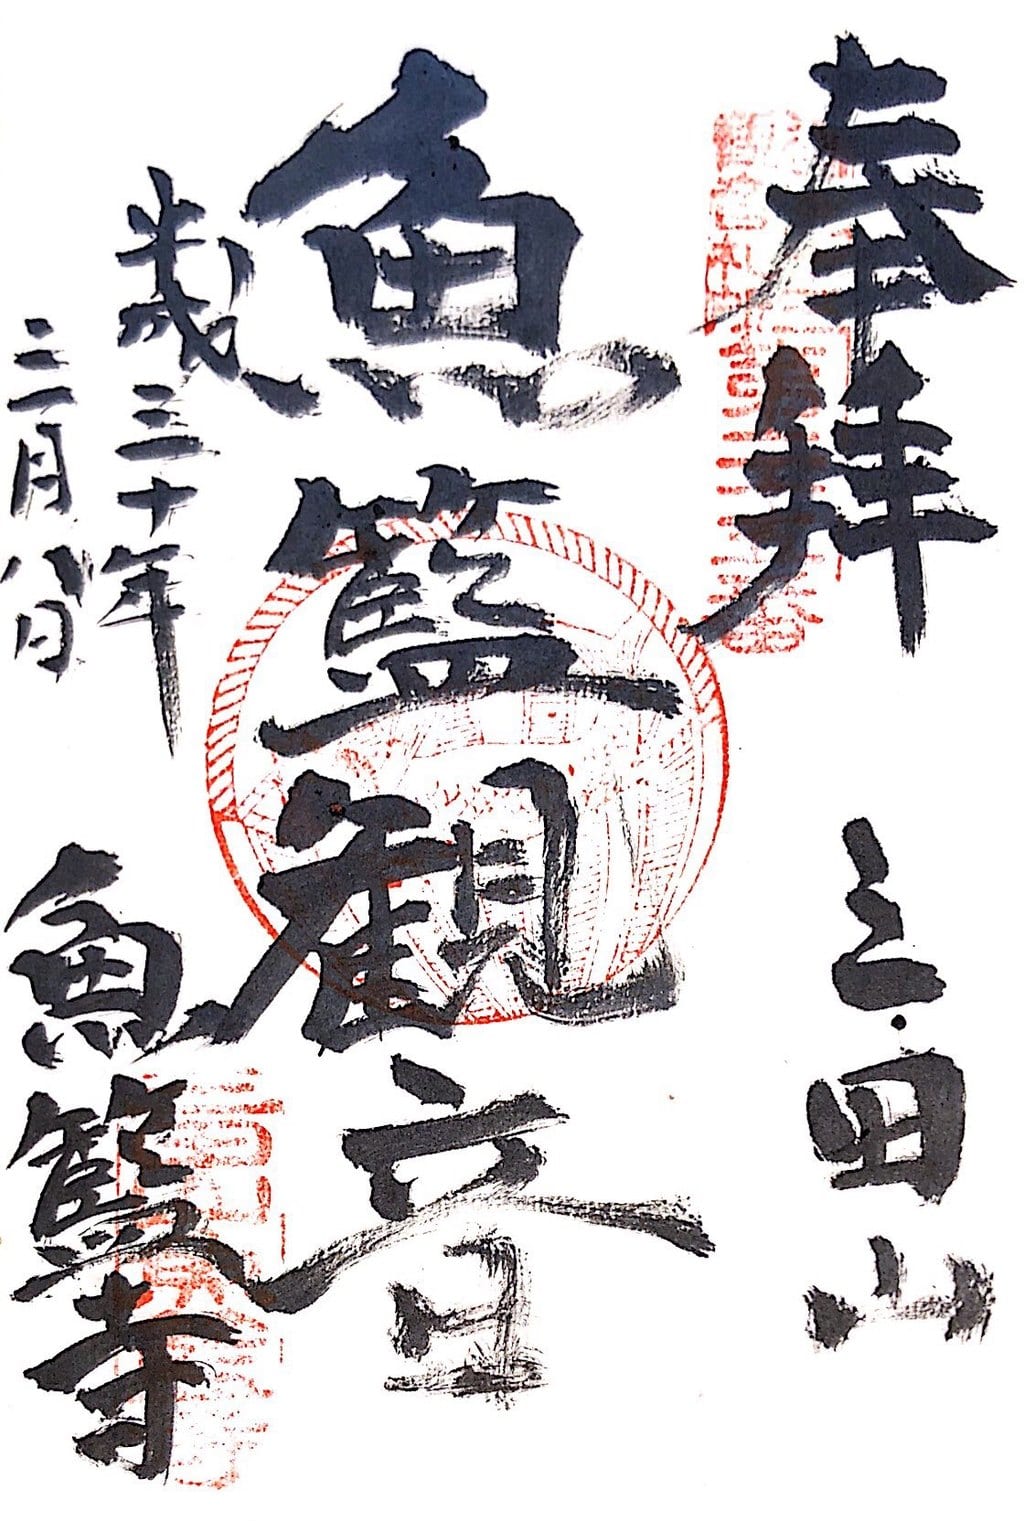 奉拝
三田山
魚籃観音
平成三十年
三月八日
魚籃寺